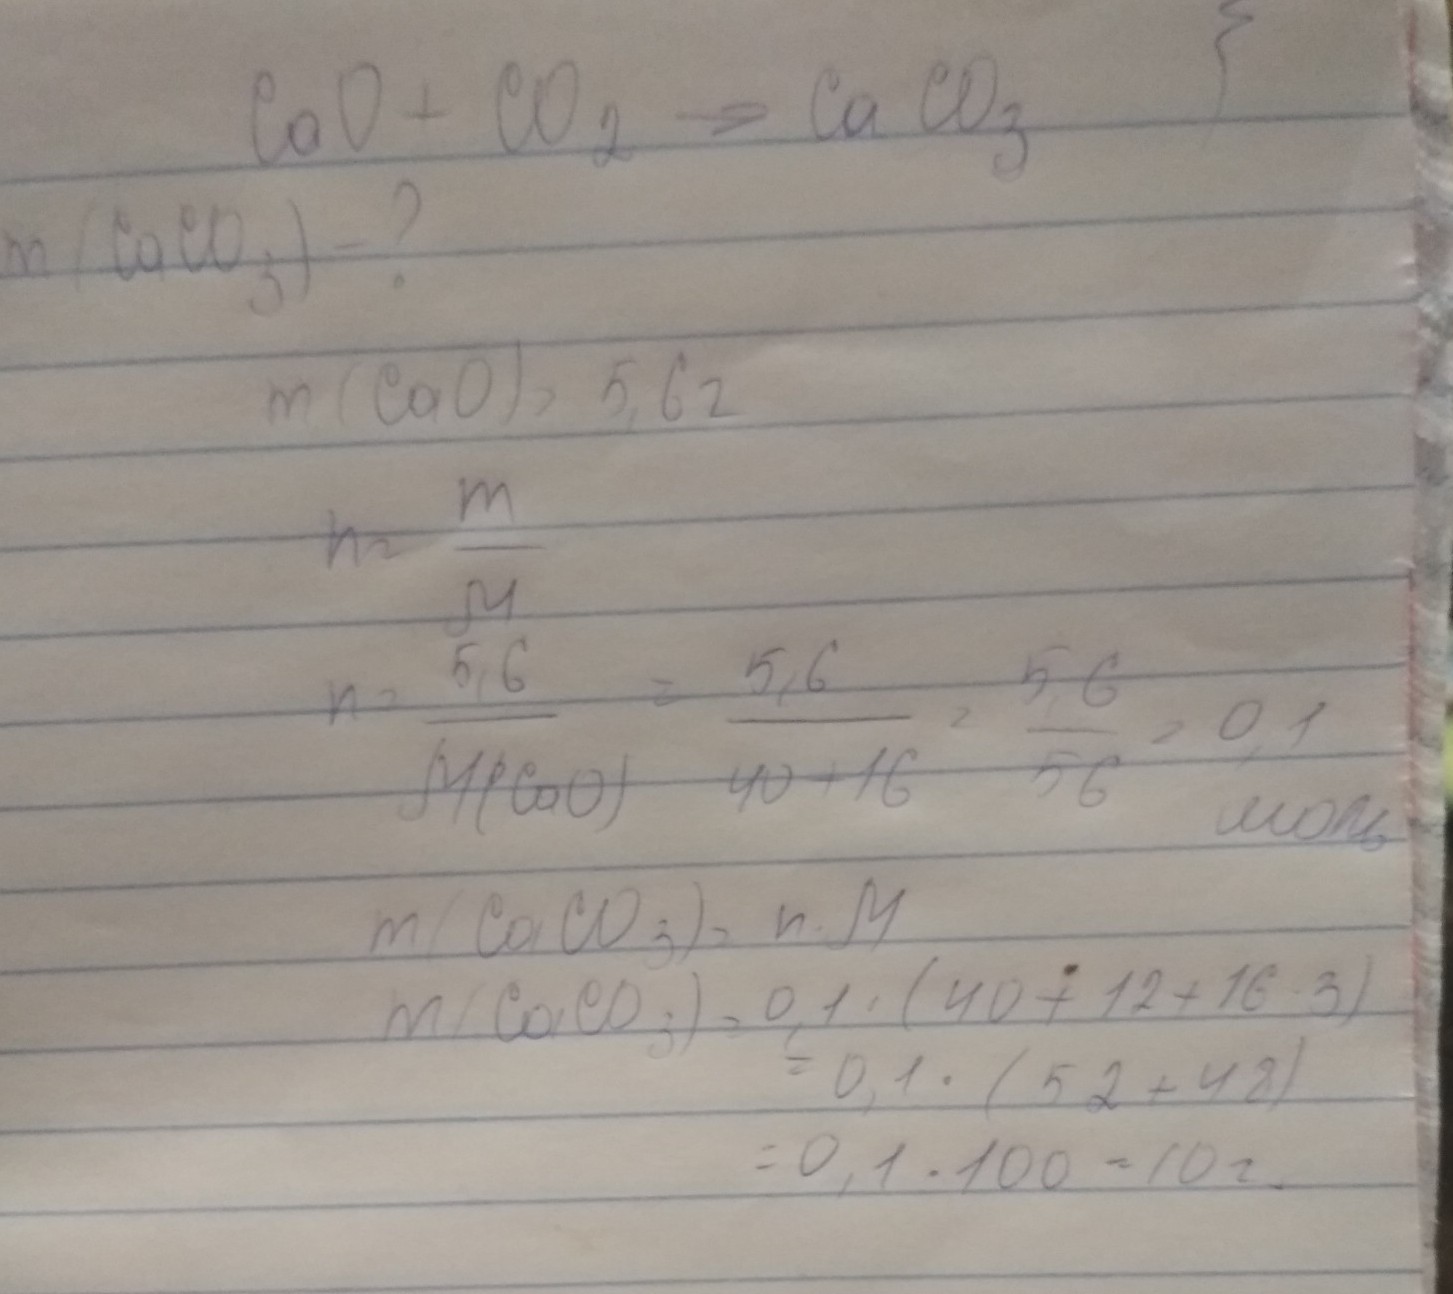 CaO + CO₂ → CaCO₃
m(CaCO₃) - ?
m(CaO) = 5,6г
n = m/M
n = 5,6/M(CaO) = 5,6/40+16 = 5,6/56 = 0,1
моль
m(CaCO₃) = n · M
m(CaCO₃) = 0,1 · (40 + 12 + 16 · 3)
= 0,1 · (52 + 48)
= 0,1 · 100 = 10г.